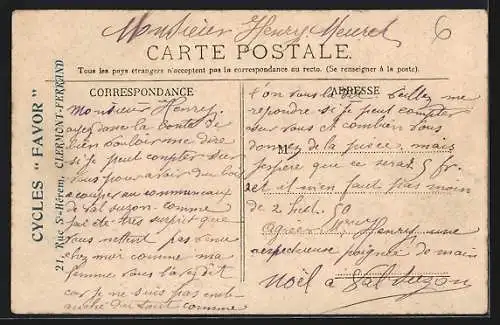 Monsieur Henry Meuret
6
CARTE POSTALE
Tous les pays étrangers n'acceptent pas la correspondance au recto. (Se renseigner à la poste).
CORRESPONDANCE
ADRESSE
CYCLES "FAVOR"
21, Rue St-Hérem, CLERMONT-FERRAND
Monsieur Henry
ayez dans la bonté de
bien vouloir me dire
si je peut compter sur
vous pour avoir du bois
a couper au communaux
de Val suzon comme
j'ai été tres surpit que
vous nettent pas venu
chez moi comme ma
femme vous l'avez dit
car je ne suis pas emb
du tout comme
l'on vous dit veillez me
repondre si je peut compter
sur vous et combien vous
M
donnez de la piece, mais
j'espere que ce seras 3 fr.
et il m'en faut pas moin
de 2 50
Agreer Mr Henry une
respectueuse poignée de main
Noël a Val suzon